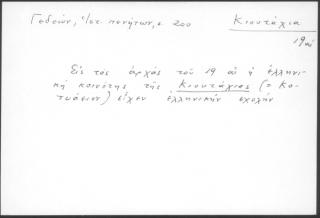 Γεδεών, Ἱστ. πενήτων, σ. 200
Κιουτάχια
19 αἰ
Εἰς τὰς ἀρχὰς τοῦ 19 αἰ ἡ ἑλληνι-
κὴ κοινότης τῆς Κιουτάχιας (= Κο-
τυάειον) εἶχεν ἑλληνικὴν σχολὴν